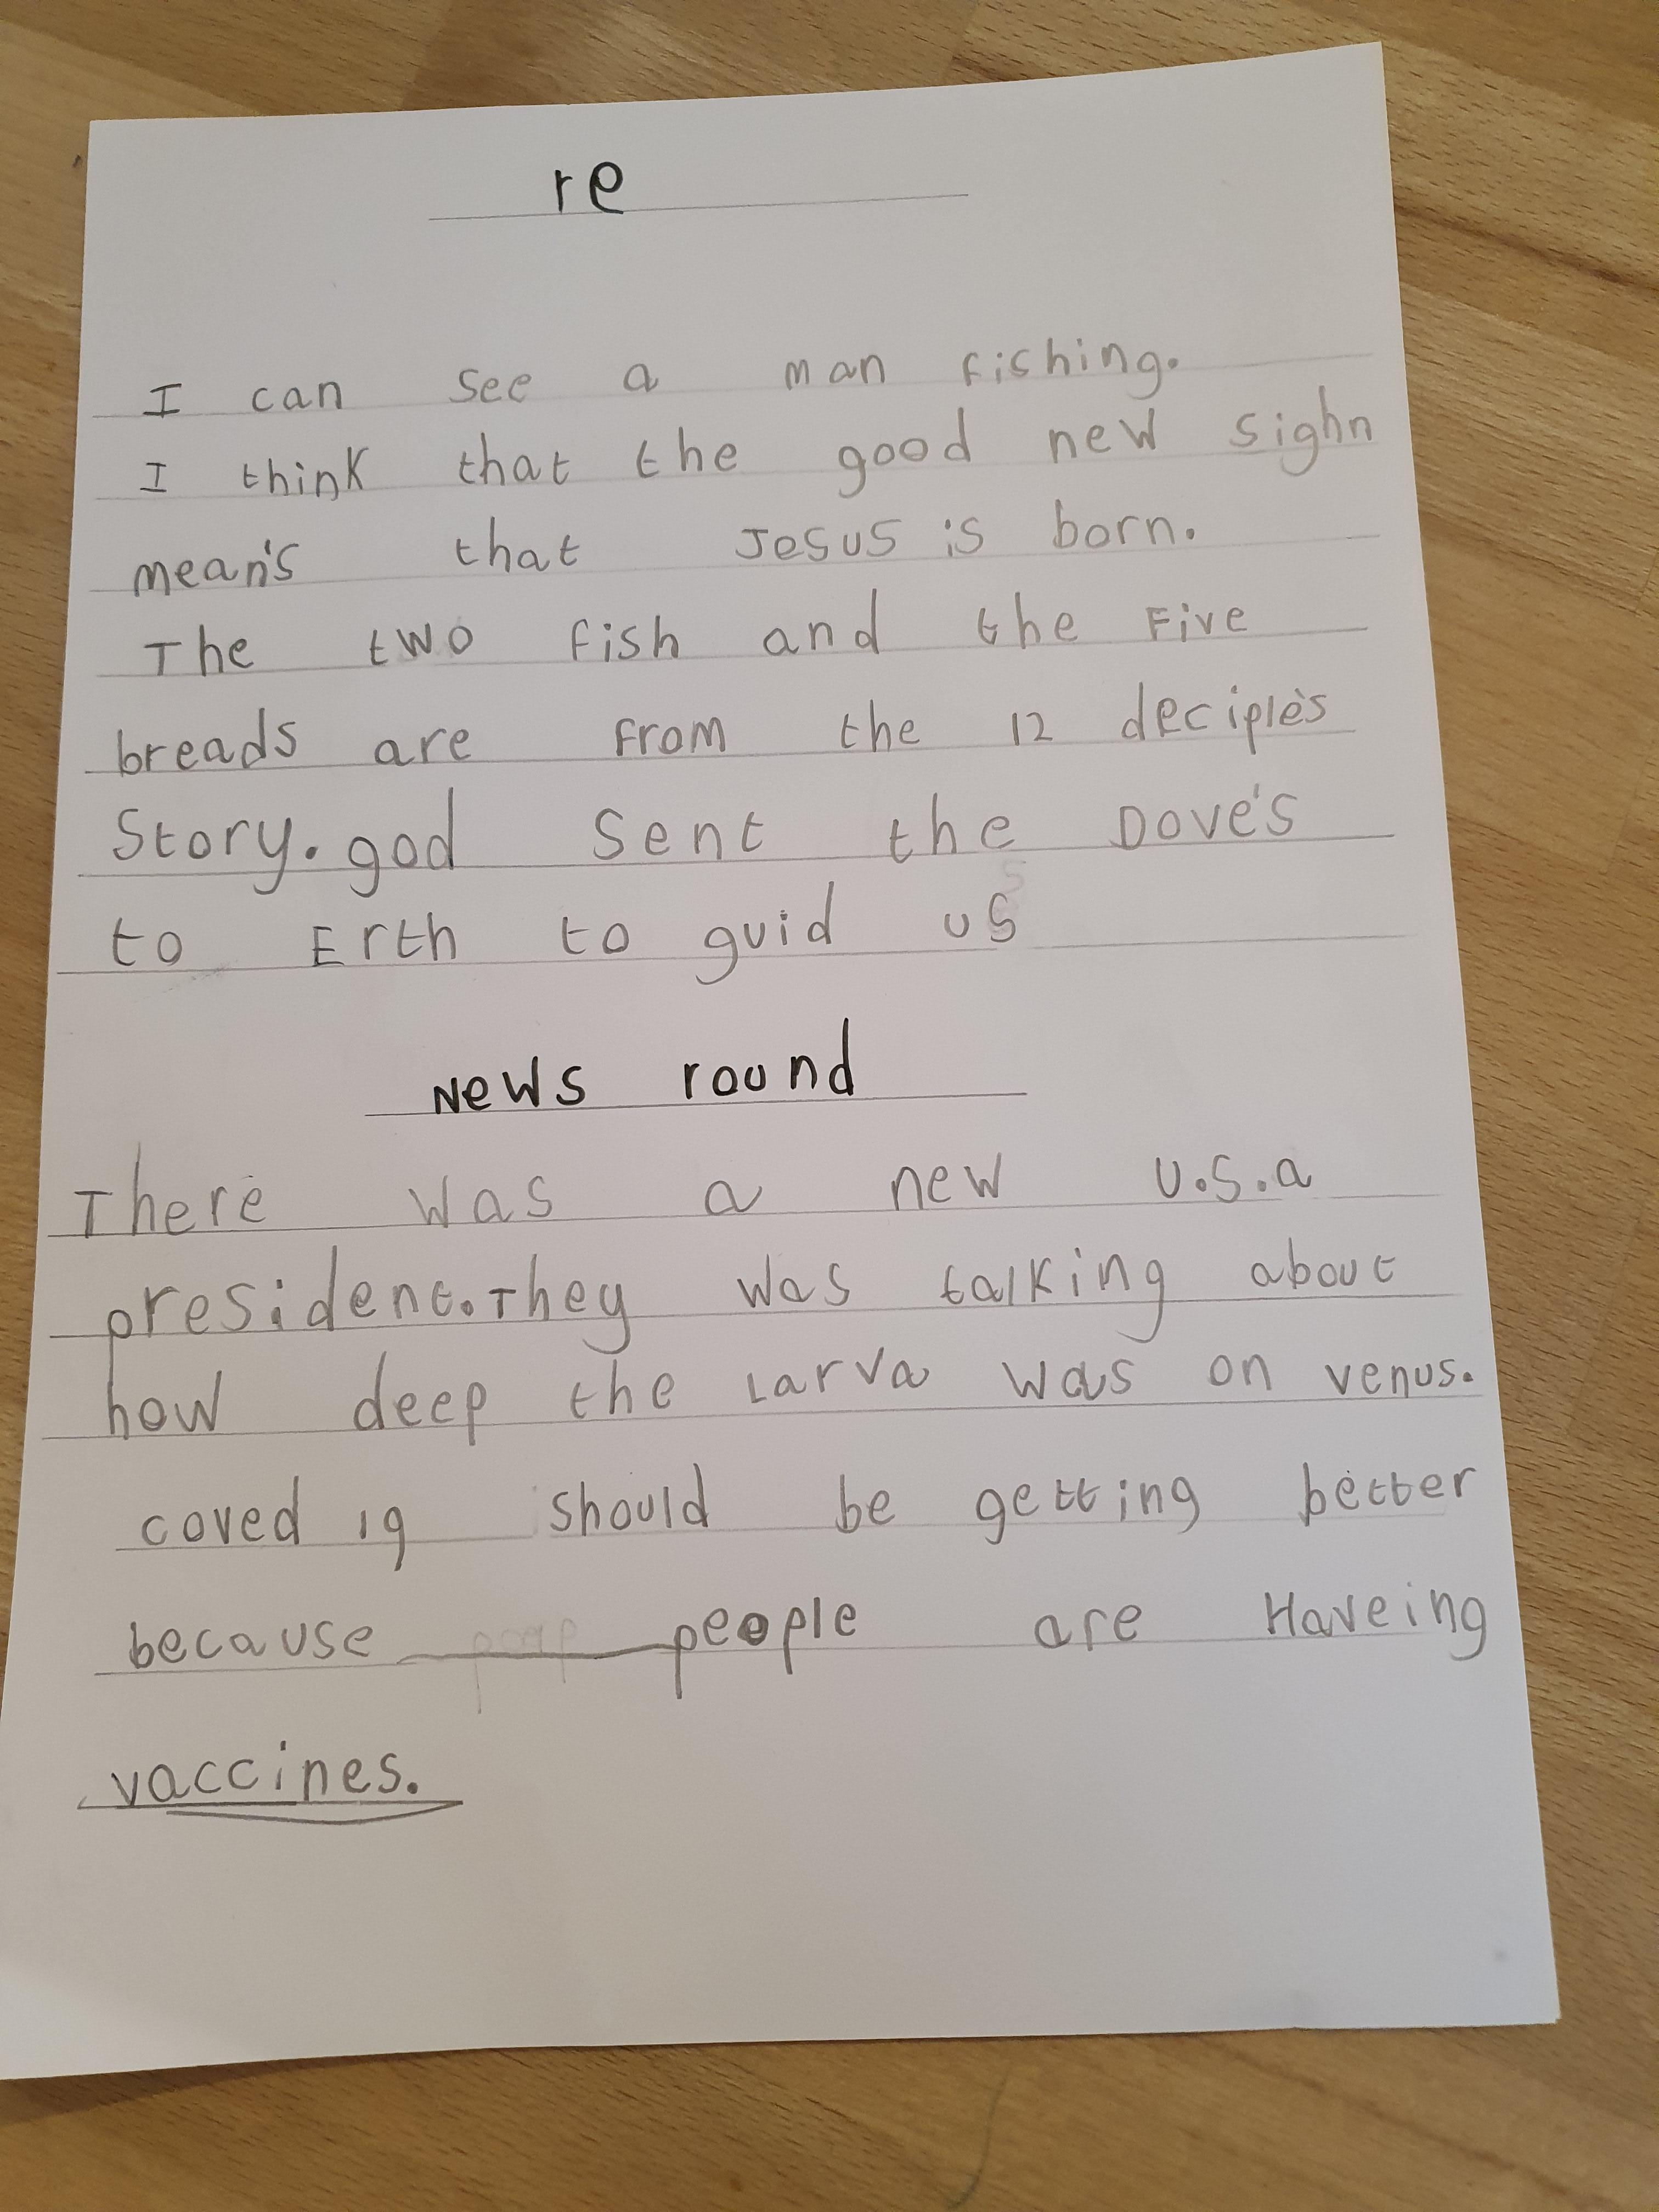 re
I can see a man fishing.
I think that the good new sighn
mean's that Jesus is born.
The two fish and the Five
breads are from the 12 deciple's
Story. god sent the Dove's
to Erth to guid us
News round
There was a new U.S.a
president. They was talking about
how deep the Larva was on venus.
coved 19 should be getting better
because people are Haveing
vaccines.